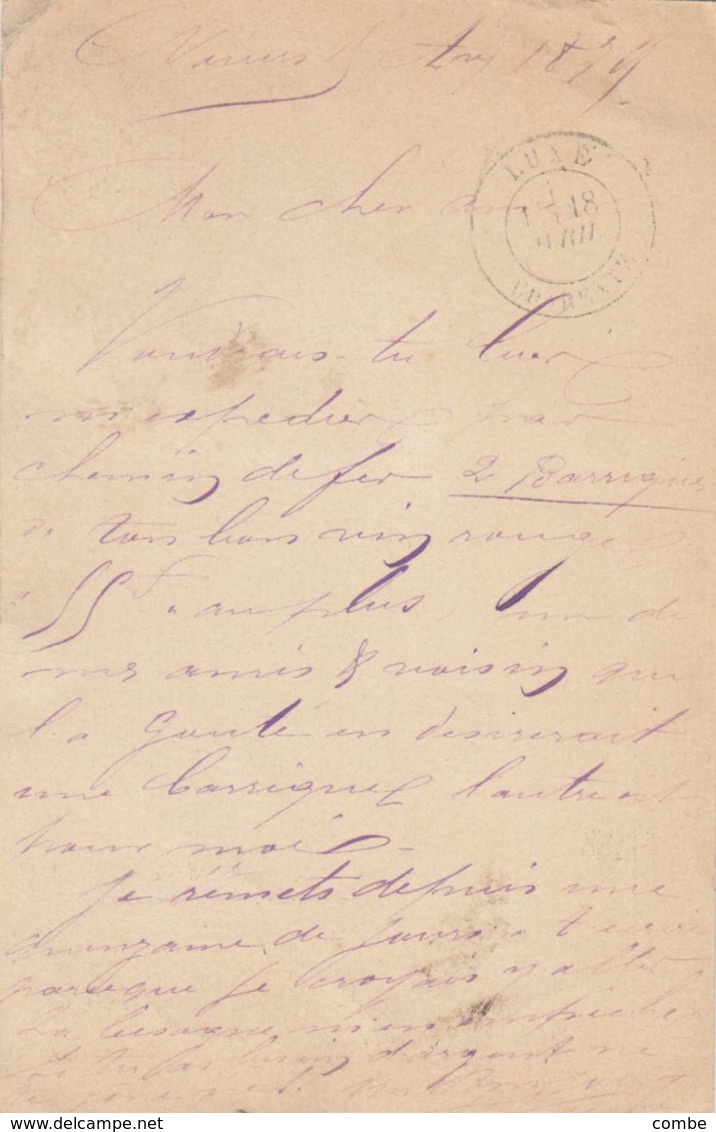 Mon cher ami
LUXE
18
AVRIL
CHARENTE
Voudrais-tu
m'expedier par
chemin de fer 2 Barriques
de ton bon vin rouge
à 55 f. au plus, un de
mes amis & voisin qui
l'a gouté en désirerait
une barrique l'autre est
pour moi
Je remets depuis une
quinzaine de jours a t'ecrire
parceque je croyais y aller
La besogne m'en empêche
Si tu as besoin d'argent ne
te gene pas
delcampe.net
combe